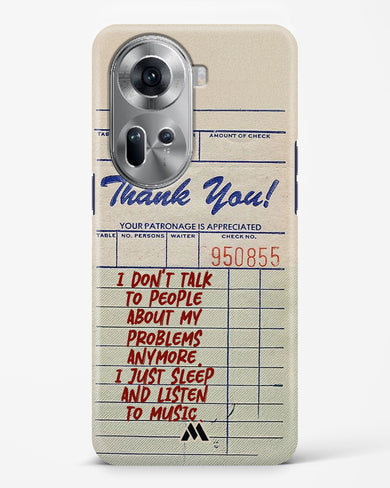 TAB
AMOUNT OF CHECK
Thank You!
YOUR PATRONAGE IS APPRECIATED
TABLE NO. PERSONS WAITER CHECK NO.
950855
I DON'T TALK
TO PEOPLE
ABOUT MY
PROBLEMS
ANYMORE.
I JUST SLEEP
AND LISTEN
TO MUSIC